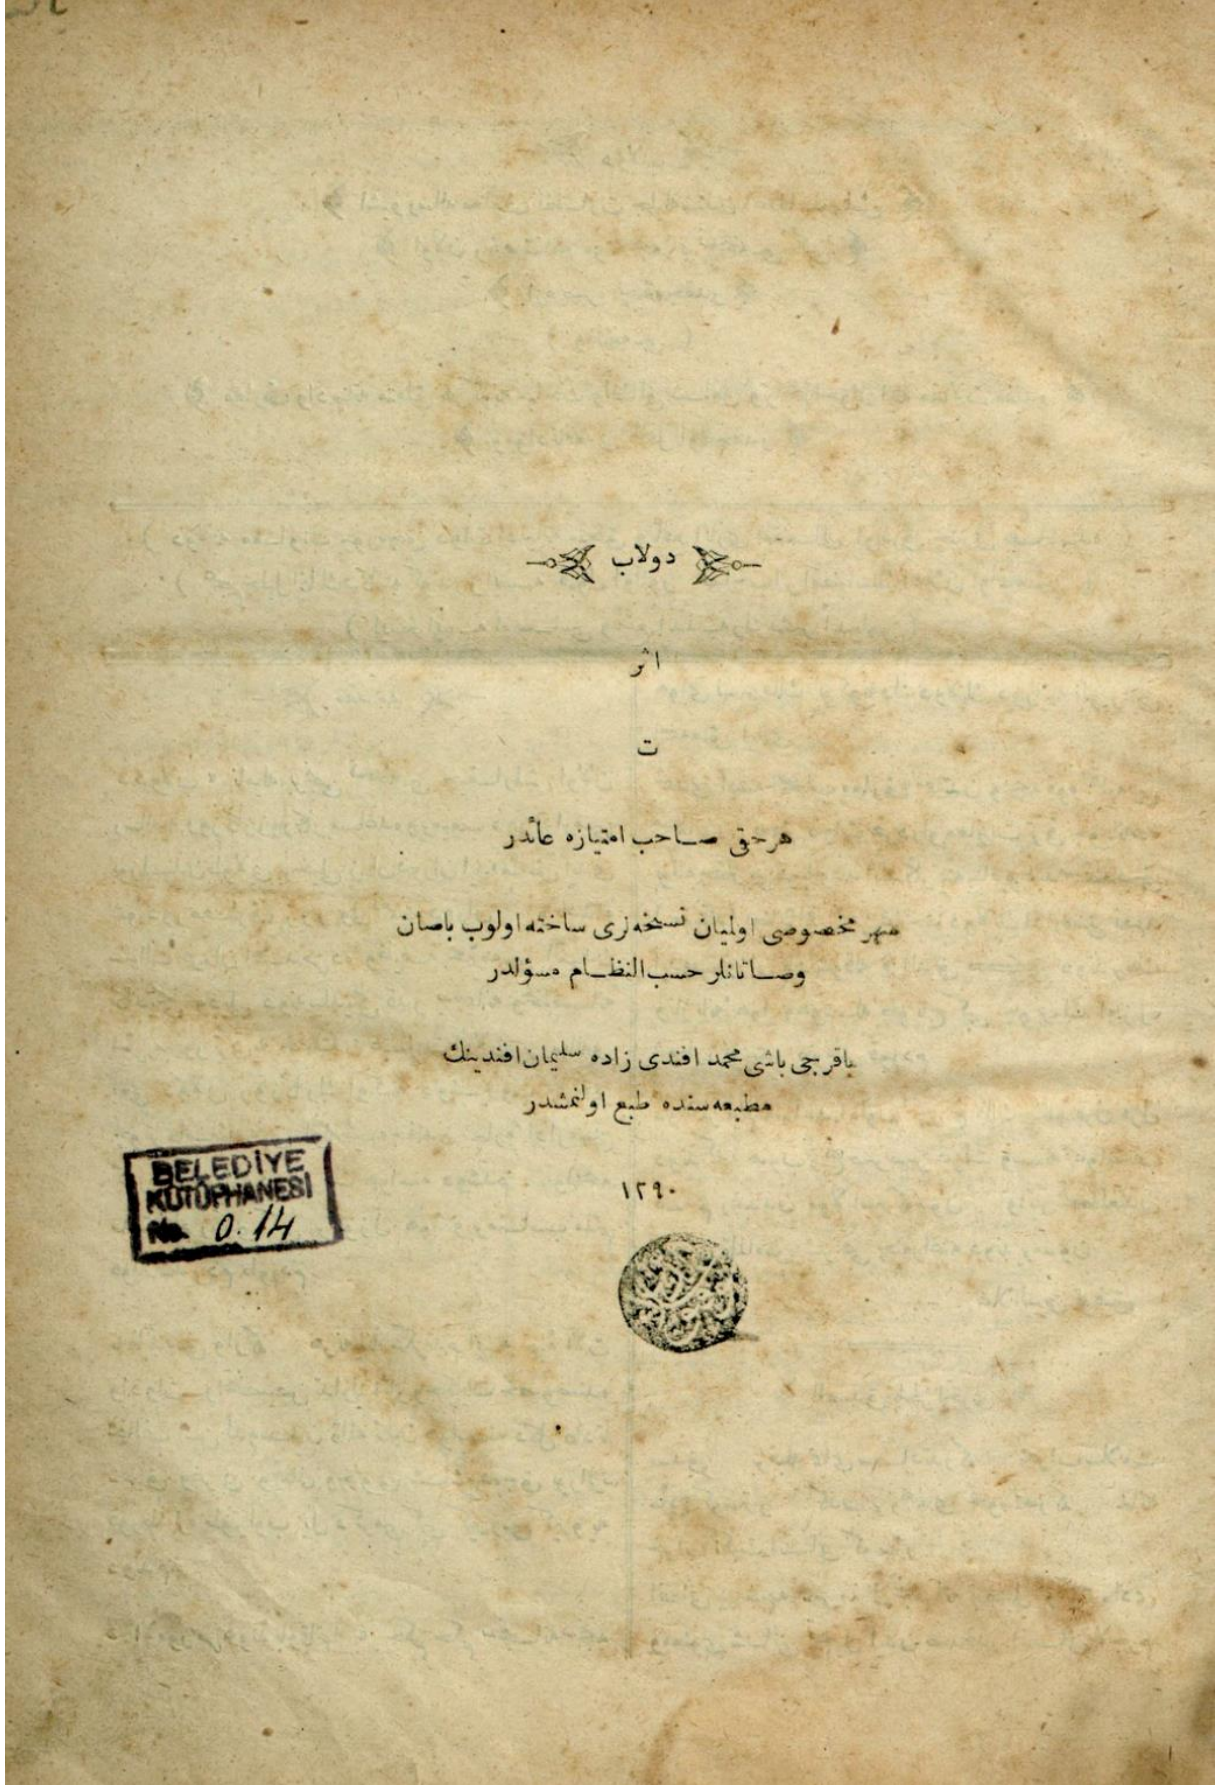 دولاب
اثر
ت
هر حق صاحب امتیازه عائدر
مهر مخصوصی اولمیان نسخه لری ساخته اولوب باصان
وصاتانلر حسب النظام مسؤلدر
باقرجی باشی محمد افندی زاده سلیمان افندینك
مطبعه سنده طبع اولنمشدر
۱۲۹۰
BELEDİYE
KÜTÜPHANESİ
No. 0.14